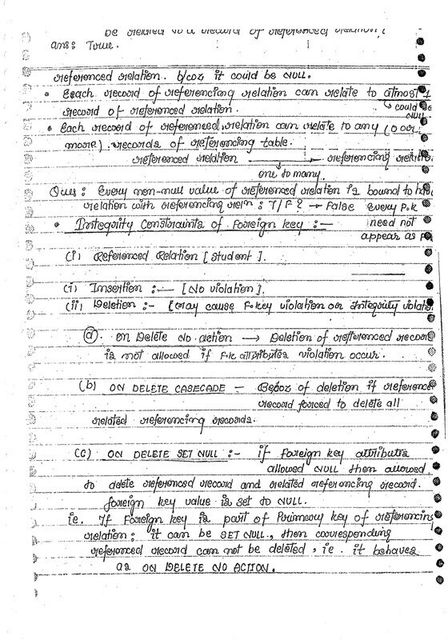 be related to a record of referenced relation?
ans: True.
referenced relation. b/coz it could be NULL.
• Each record of referencing relation can relate to atmost 1
record of referenced relation. ↳ could be NULL
• Each record of referenced relation can relate to any (0 or
more) records of referencing table.
referenced relation → referencing
one to many.
Que: Every non-null value of referenced relation is bound to
relation with referencing : T/F ? → False every P.K
need not
appear as
• Integrity Constraints of Foreign key :-
(i) Referenced Relation [Student].
(i) Insertion :- [No violation].
(ii) Deletion :- [may cause F.key violation or Integrity
(a) On Delete No action → Deletion of referenced
is not allowed if F.K attributes violation occur.
(b) ON DELETE CASECADE - Becoz of deletion if
record forced to delete all
related referencing records.
(c) ON DELETE SET NULL :- if Foreign key attributes
allowed NULL then allowed
to delete referenced record and related referencing record.
foreign key value is set to NULL.
ie. If Foreign key is part of Primary key of
relation: it can be SET NULL, then corresponding
referenced record can not be deleted, ie. it behaves
as ON DELETE NO ACTION.